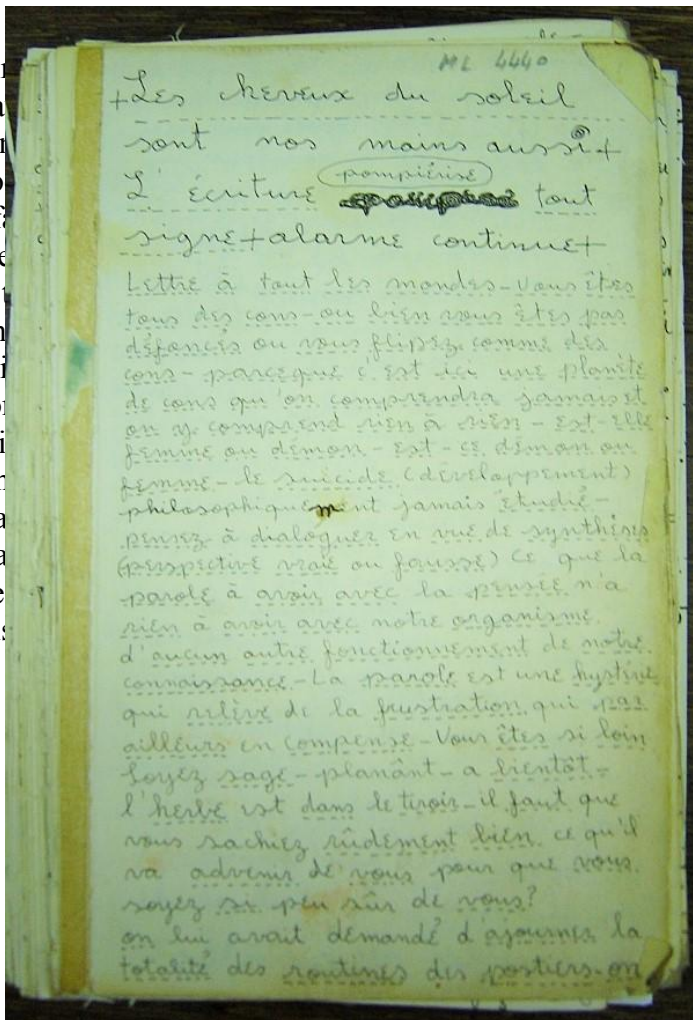 ML 4440
+Les cheveux du soleil
sont nos mains aussi+
pompiérise
L'écriture tout
signe+alarme continue+
Lettre à tout les mondes-Vous êtes
tous des cons-ou bien vous êtes pas
défoncés ou vous flipez comme des
cons-parceque c'est ici une planète
de cons qu'on comprendra jamais et
on y comprend rien à rien-est-elle
femme ou démon-est-ce démon ou
femme-le suicide (développement)
philosophiquement jamais étudié-
pensez-à dialoguer en vue de synthèses
(perspective vraie ou fausse) Ce que la
parole à avoir avec la pensée n'a
rien à avoir avec notre organisme
d'aucun autre fonctionnement de notre
connaissance-La parole est une hystérie
qui relève de la frustration qui par
ailleurs en compense-Vous êtes si loin
soyez sage-planânt-a bientôt-
l'herbe est dans le tiroir-il faut que
vous sachiez rûdement bien ce qu'il
va advenir de vous pour que vous
soyez si peu sûr de vous?
on lui avait demandé d'ajourner la
totalité des routines des postiers-on